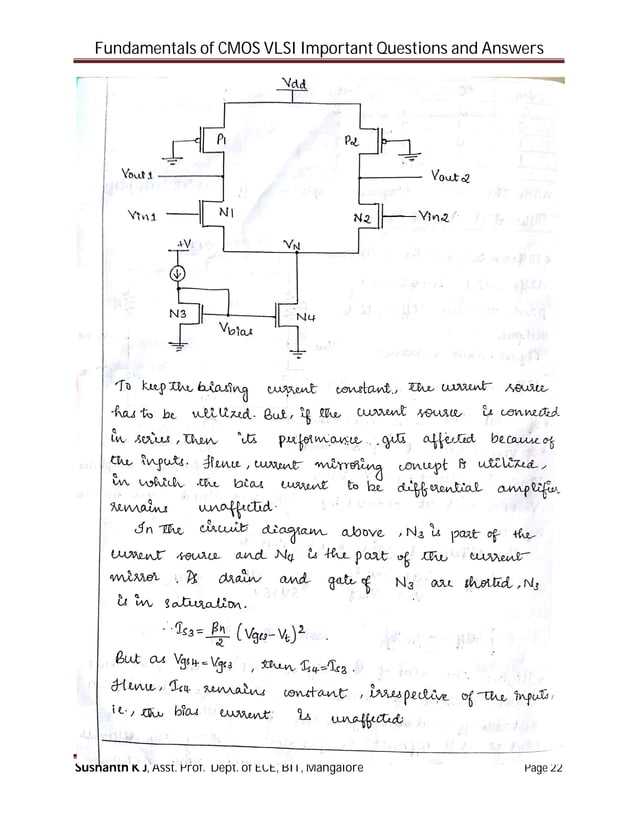 Fundamentals of CMOS VLSI Important Questions and Answers
Vdd
P1
P2
Vout1
Vout2
Vin1
N1
N2
Vin2
+V
VN
N3
N4
Vbias
To keep the biasing current constant, the current source
has to be utilized. But, if the current source is connected
in series, then its performance gets affected because of
the inputs. Hence, current mirroring concept is utilized,
in which the bias current to be differential amplifier
remains unaffected.
In the circuit diagram above, N3 is part of the
current source and N4 is the part of the current
mirror. As drain and gate of N3 are shorted, N3
is in saturation.
∴ Is3 = βn/2 (Vgs3-Vt)²
But as Vgs4 = Vgs3, then Is4 = Is3.
Hence, Is4 remains constant, irrespective of the inputs,
ie., the bias current is unaffected.
Sushanth K J, Asst. Prof. Dept. of ECE, BIT, Mangalore
Page 22